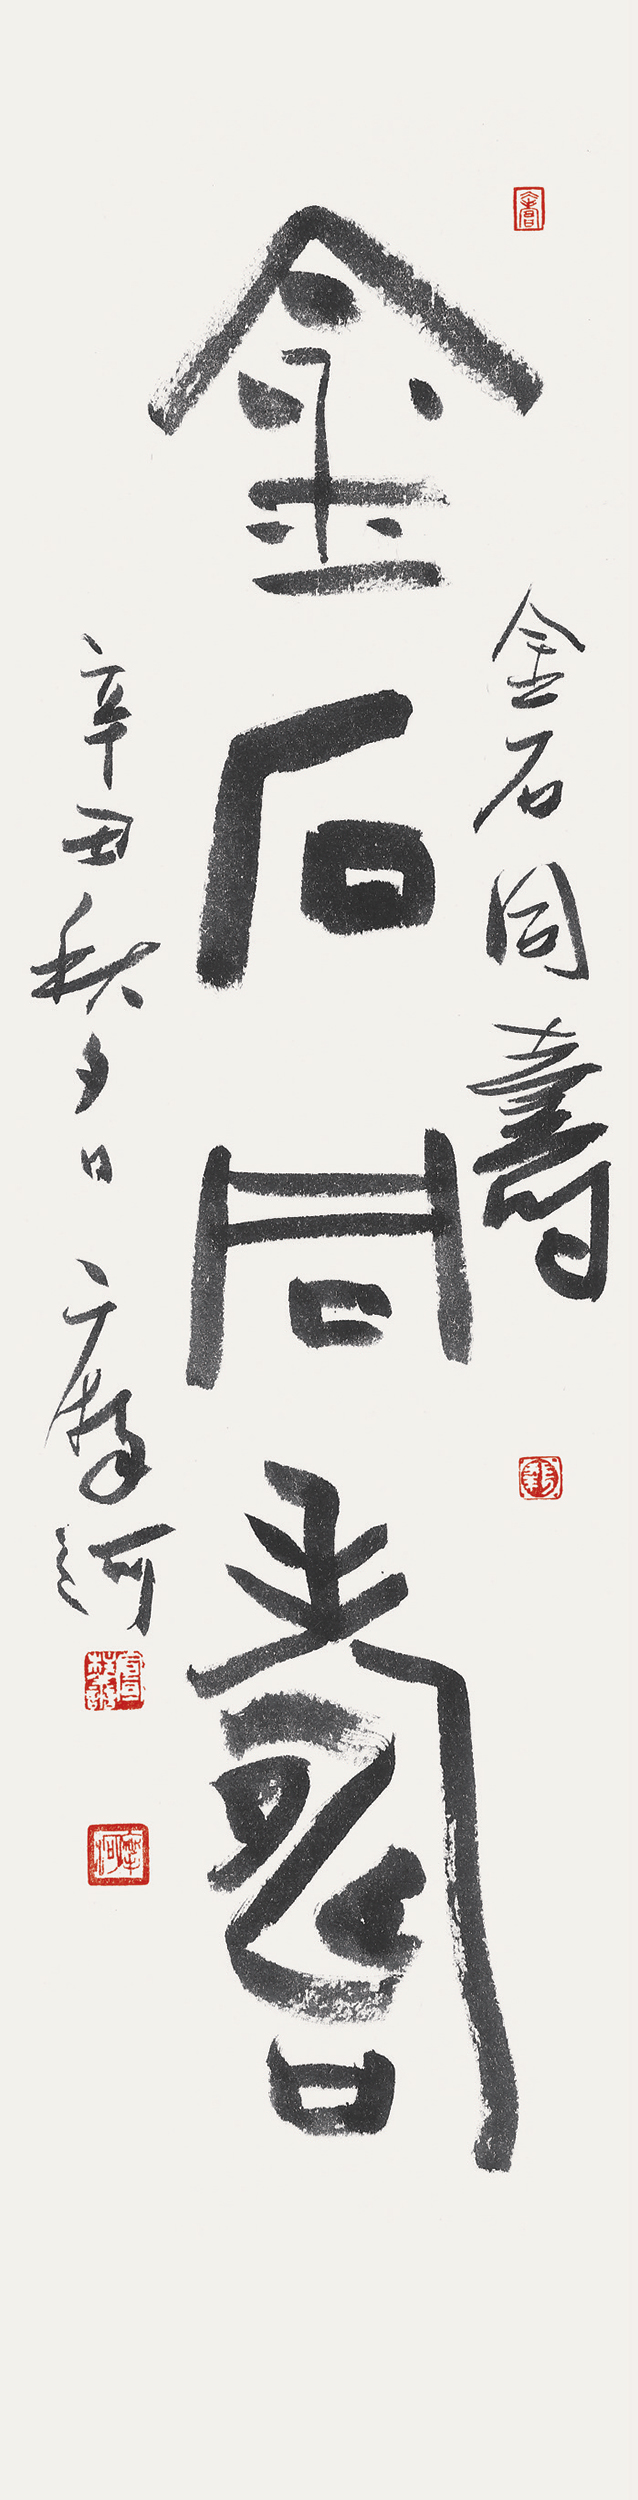 金石同壽
金石同壽
辛丑秋夕日 摩河